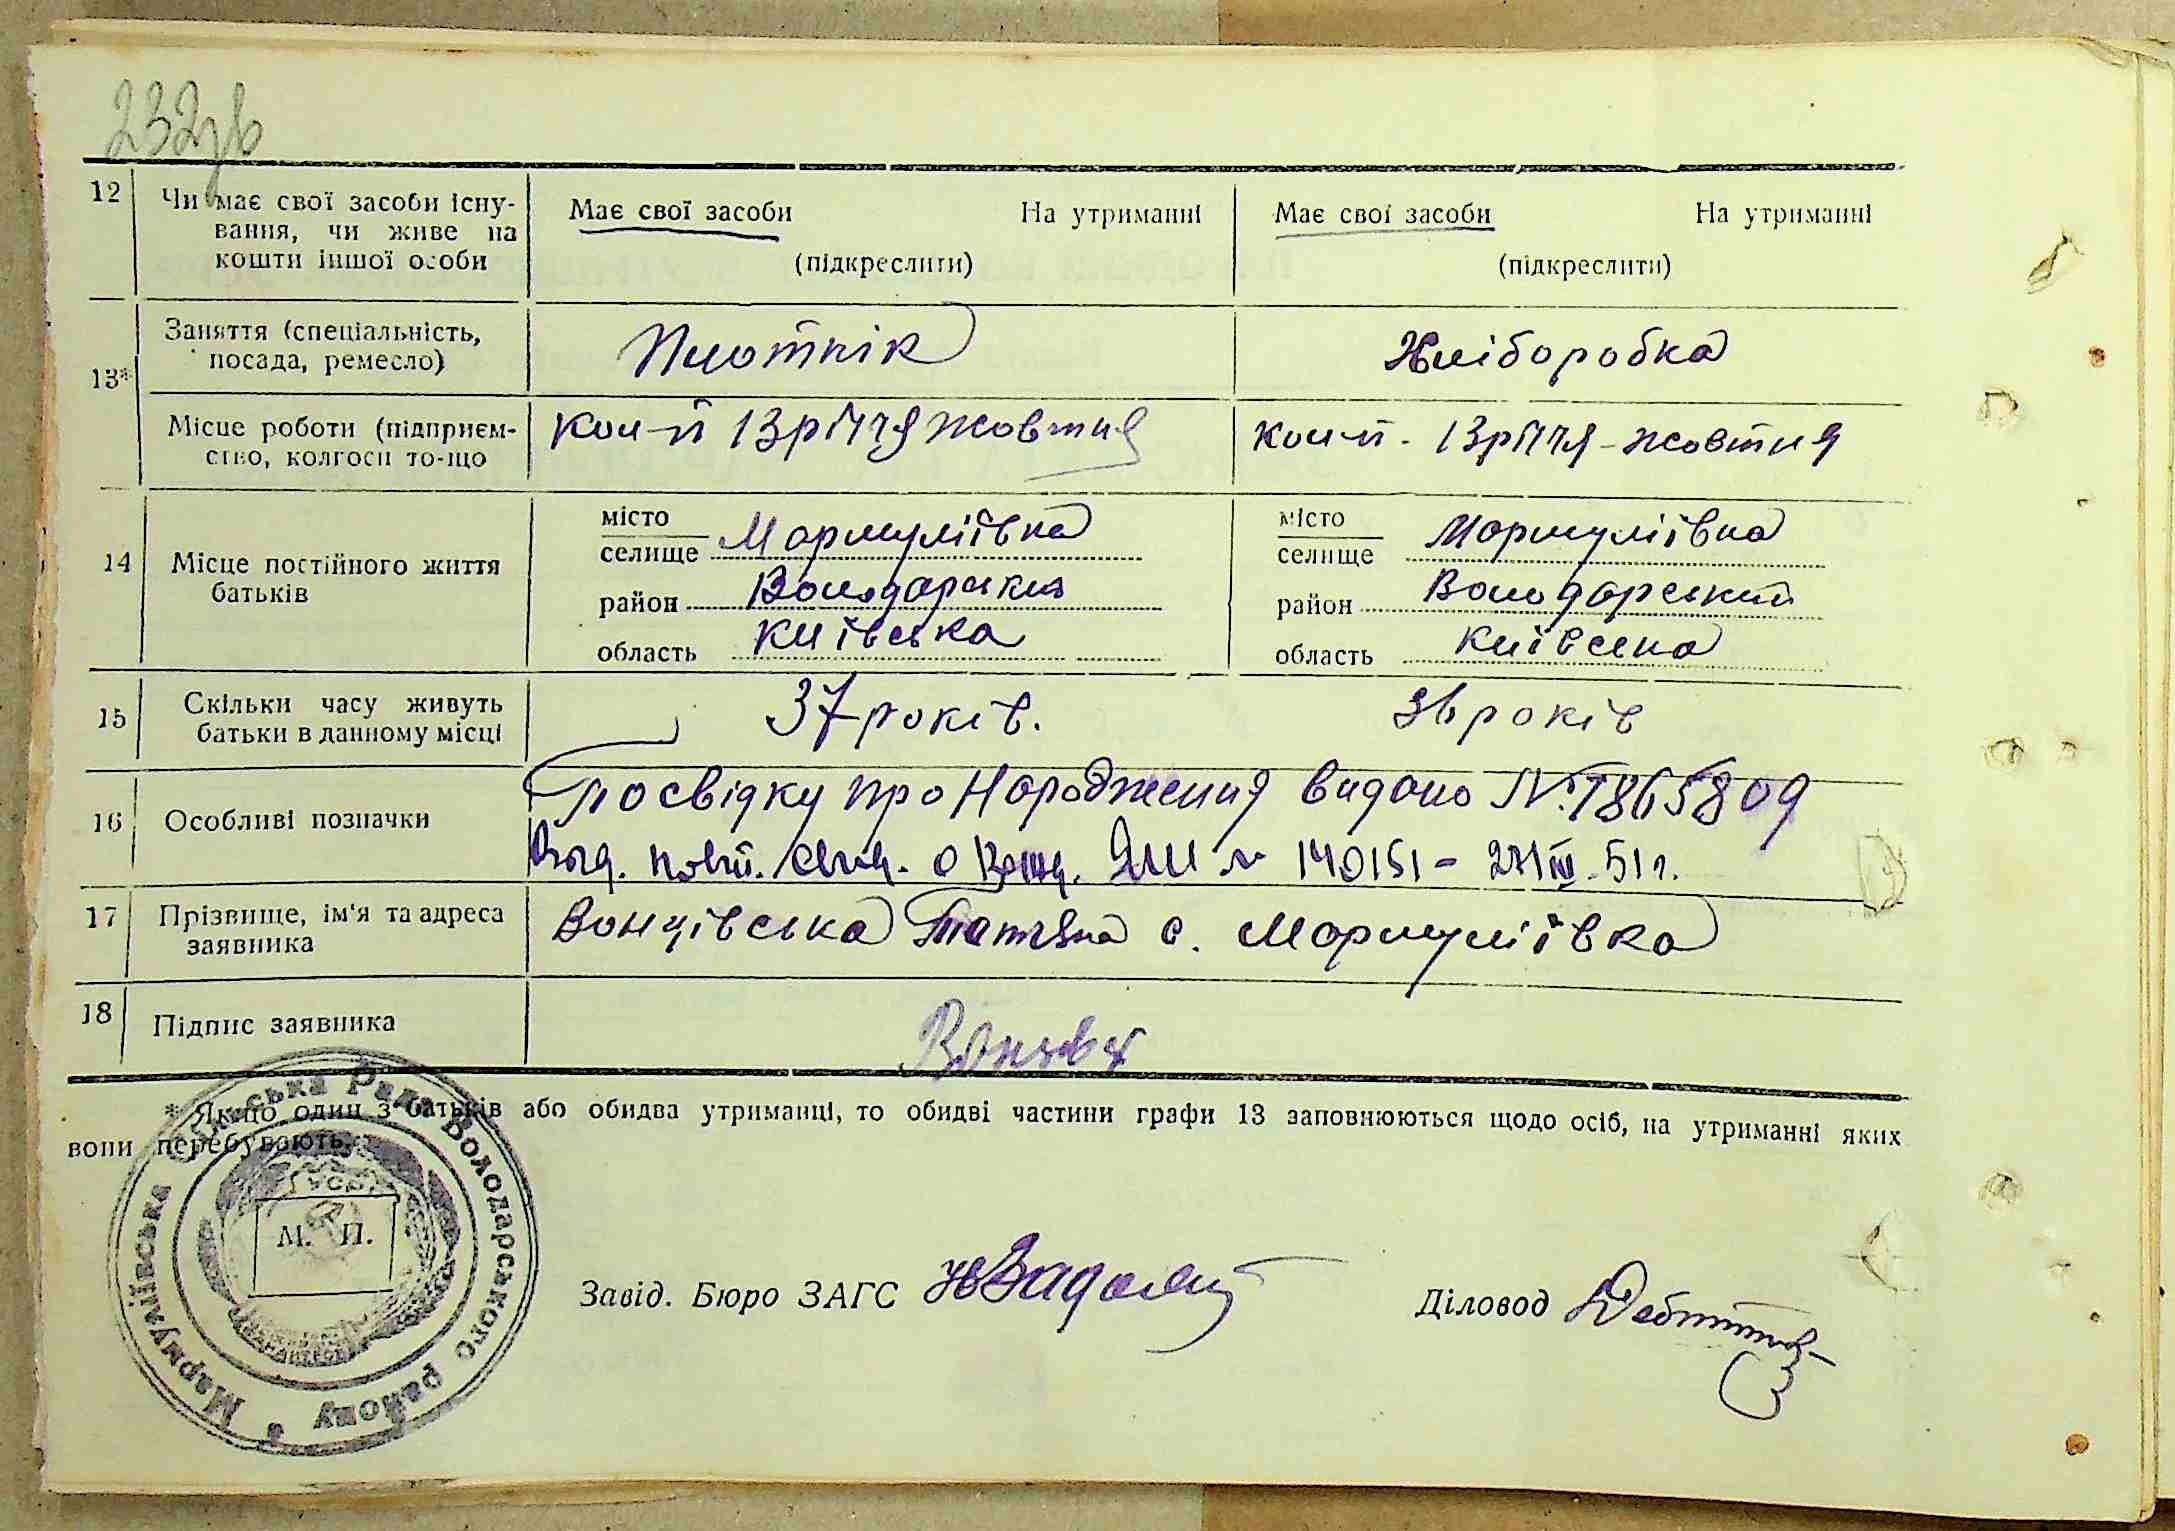 232зв
12 Чи має свої засоби існу-
вання, чи живе на
кошти іншої особи
Має свої засоби На утриманні
(підкреслити)
Має свої засоби На утриманні
(підкреслити)
13*
Заняття (спеціальність,
посада, ремесло)
Плотнік
Хліборобка
Місце роботи (підприєм-
ство, колгосп то-що
Кол-п 13 річчя Жовтня
Кол-п. 13 річчя - Жовтня
14 Місце постійного життя
батьків
місто
селище Мармуліївка
район Володарский
область Київська
місто
селище Мармуліївка
район Володарский
область Київська
15 Скільки часу живуть
батьки в данному місці
37 років.
36 років
16 Особливі позначки
Посвідку про Народження видано №
Выд. повт. 27/IV-51 г.
17 Прізвище, ім'я та адреса
заявника
Вонцівська Татяна с. Мармуліївка
18 Підпис заявника
* Якщо один з батьків або обидва утриманці, то обидві частини графи 13 заповнюються щодо осіб, на утриманні яких
вони перебувають.
Мармуліївська Сільська Рада Володарського району
УСРР
М. П.
Завід. Бюро ЗАГС
Діловод